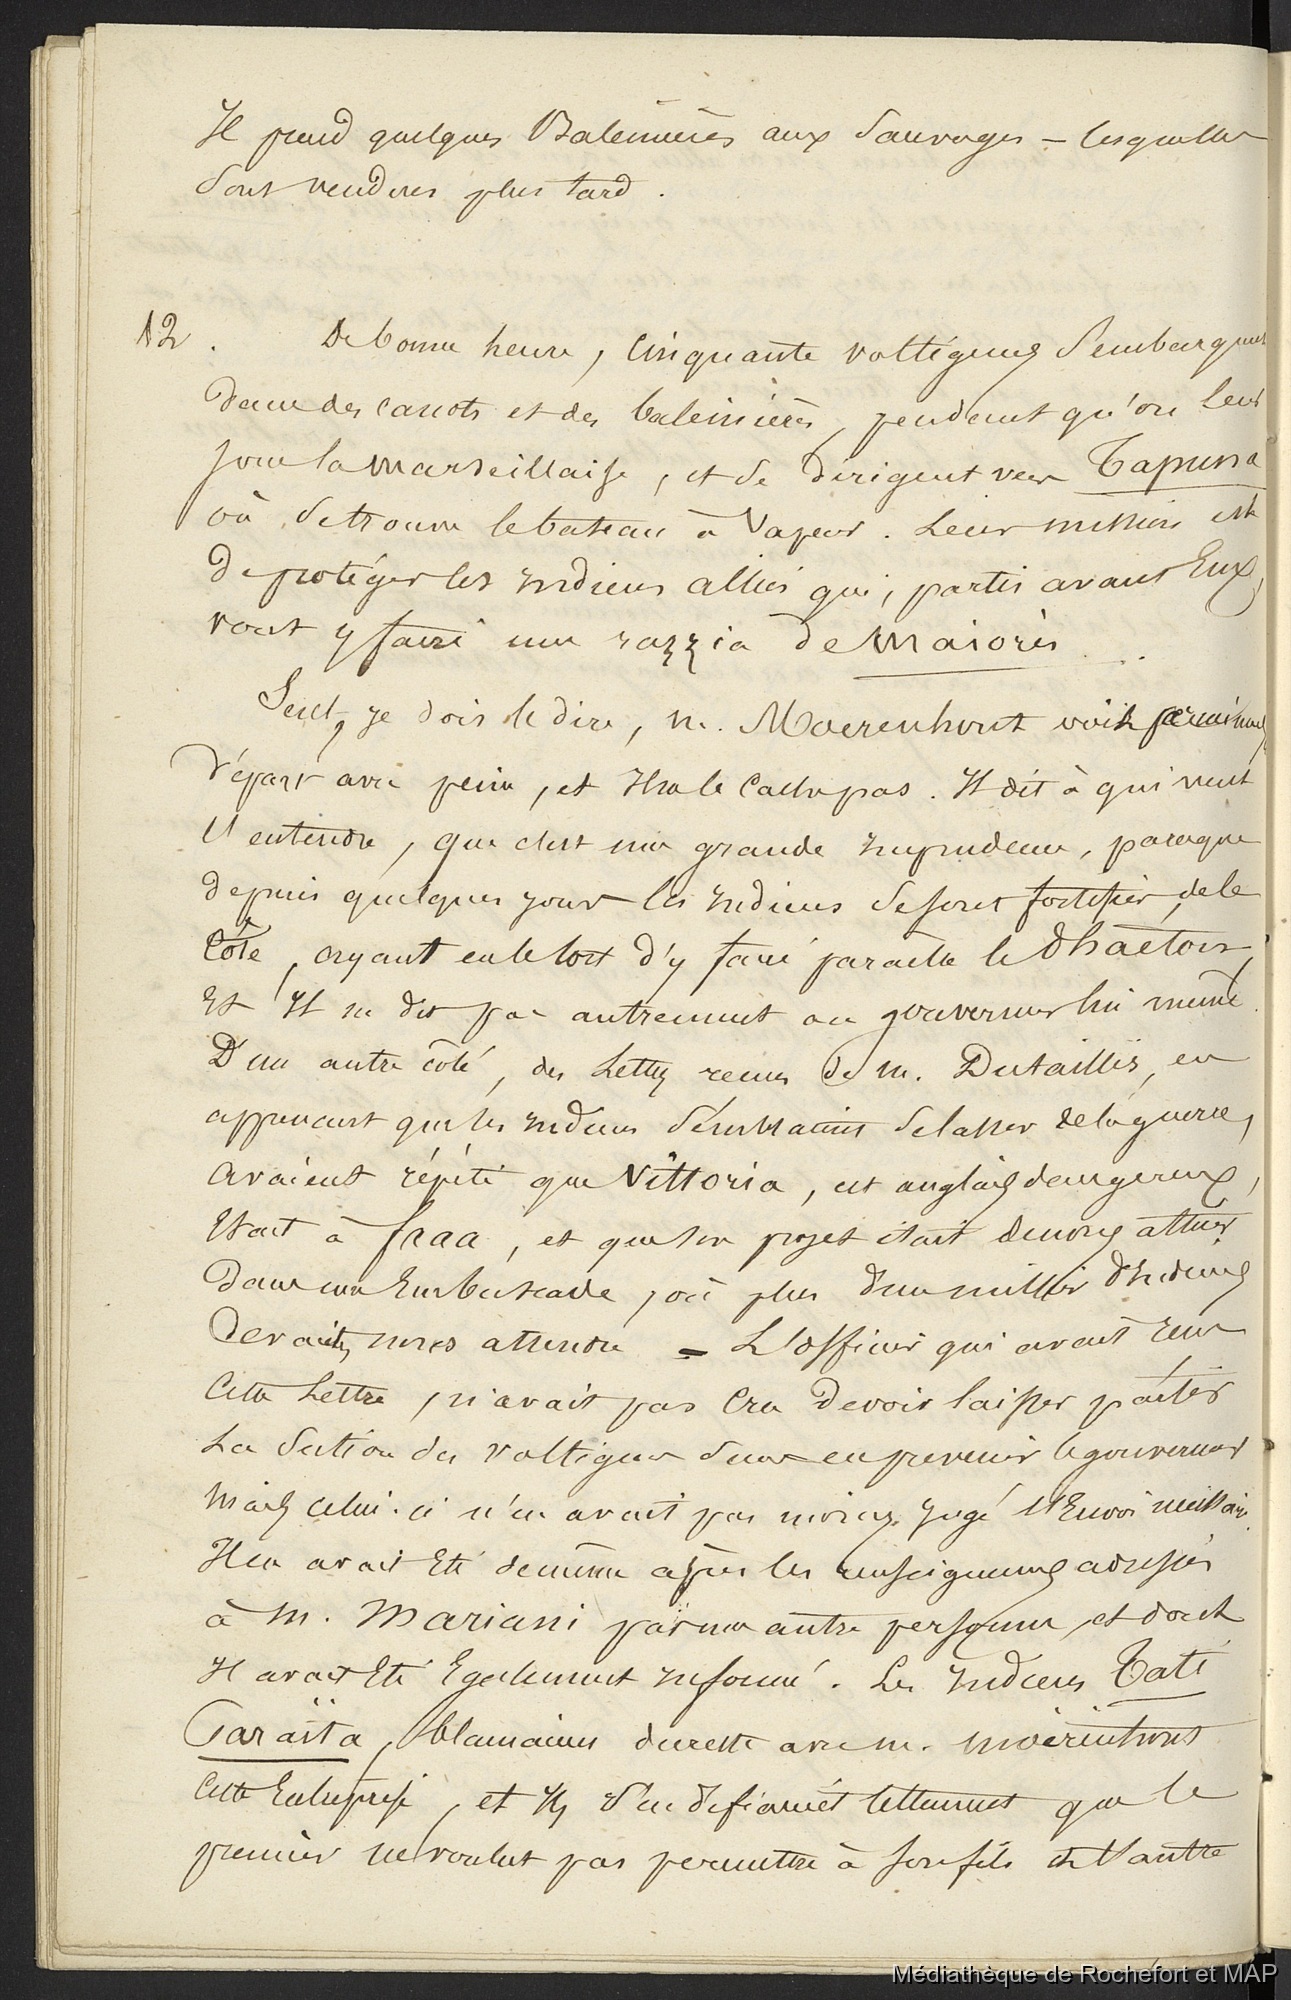 Il prend quelques Baleinières aux Sauvages – lesquelles
sont vendues plus tard.
12. De bonne heure, cinquante voltigeurs s'embarquent
dans des canots et des baleinières, pendant qu'on leur
joue la marseillaise, et se dirigent vers Tapuna
où se trouve le bateau à vapeur. Leur mission est
de protéger les indiens alliés qui, partis avant Eux,
vont y faire une razzia de Maiorès
Seul, je dois le dire, M. Moerenhout voit
départ avec peine, et Il ne le cache pas. Il dit à qui veut
l'entendre, que c'est une grande imprudence, parceque
depuis quelques jours les indiens se sont fortifiés de ce
côté, ayant eu le tort d'y faire paraître le Phaéton,
Et Il ne dit pas autrement au gouverneur lui même.
D'un autre côté, des Lettres reçues de M. Dutaillis, en
apprenant que les indiens sembleraient se lasser de la guerre,
avaient répété que Vittoria, cet anglais dangereux,
Etait à faaa, et que son projet était de nous attirer
dans une Embuscade, où plus d'un millier d'Indiens
devaient nous attendre – L'officier qui avait reçu
cette Lettre, n'avait pas cru devoir laisser partir
La Section des voltigeurs sans en prévenir le gouverneur
Mais celui-ci n'en avait pas moins jugé l'Envoi nécessaire.
Il en avait Eté de même après les renseignements adressés
à M. Mariani par une autre personne, et dont
Il avait Eté Egalement informé. Les indiens Tati
Taraïta, blamaient du reste avec M. Moerenhout
cette Entreprise, et Ils s'en défiaient tellement que le
premier ne voulut pas permettre à son fils et l'autre
Médiathèque de Rochefort et MAP